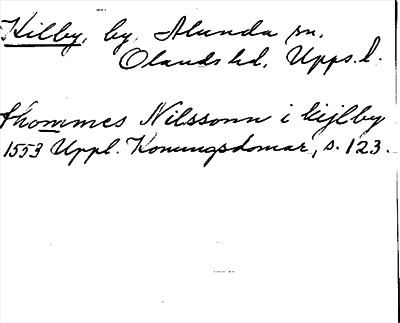 Kilby, by, Alunda sn,
Olands hd, Upps. l.
thommes Nilssonn i kijlby
1553 Uppl. Konungsdomar, s. 123.